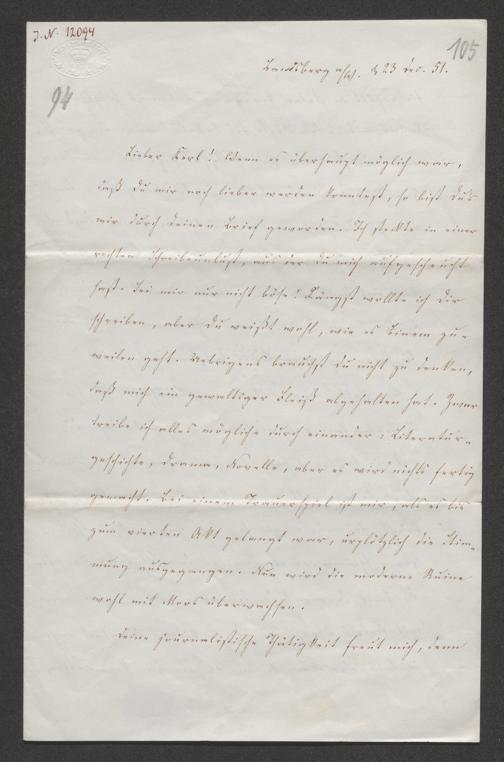 J. N. 12094
105
94
Landsberg a/W. d 23 Dec. 51.
Lieber Karl! Wenn es überhaupt möglich war,
daß Du mir noch lieber werden konntest, so bist Du's
mir durch Deinen Brief geworden. Ich steckte in einer
rechten Schreibeunlust, aus der Du mich aufgescheucht
hast. Sei mir nur nicht böse! Längst wollte ich Dir
schreiben, aber Du weißt wohl, wie es Einem zu-
weilen geht. Uebrigens brauchst Du nicht zu denken,
daß mich ein gewaltiger Fleiß abgehalten hat. Zwar
treibe ich alles mögliche durch einander: Literatur-
geschichte, Drama, Novelle, aber es wird nichts fertig
gemacht. Bei einem Trauerspiel ist mir, als es bis
zum vierten Akt gelangt war, urplötzlich die Stim-
mung ausgegangen. Nun wird die moderne Ruine
wohl mit Moos überwachsen.
Deine journalistische Thätigkeit freut mich, denn